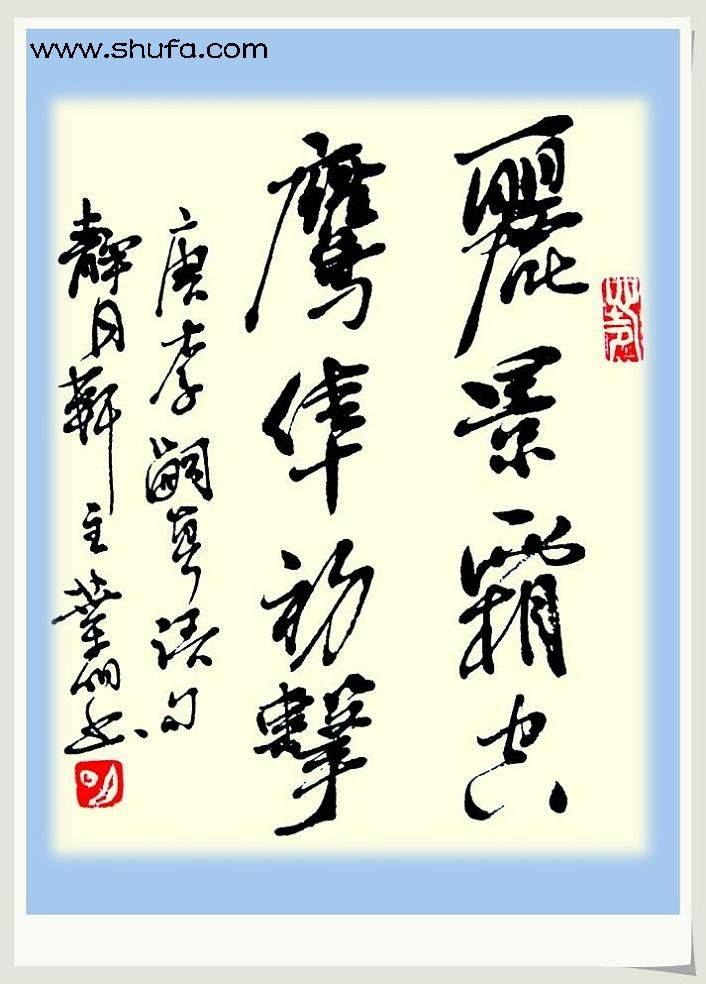 www.shufa.com
麗景霜空
鷹隼初擊
唐李嗣真語句
靜月軒主葉明書